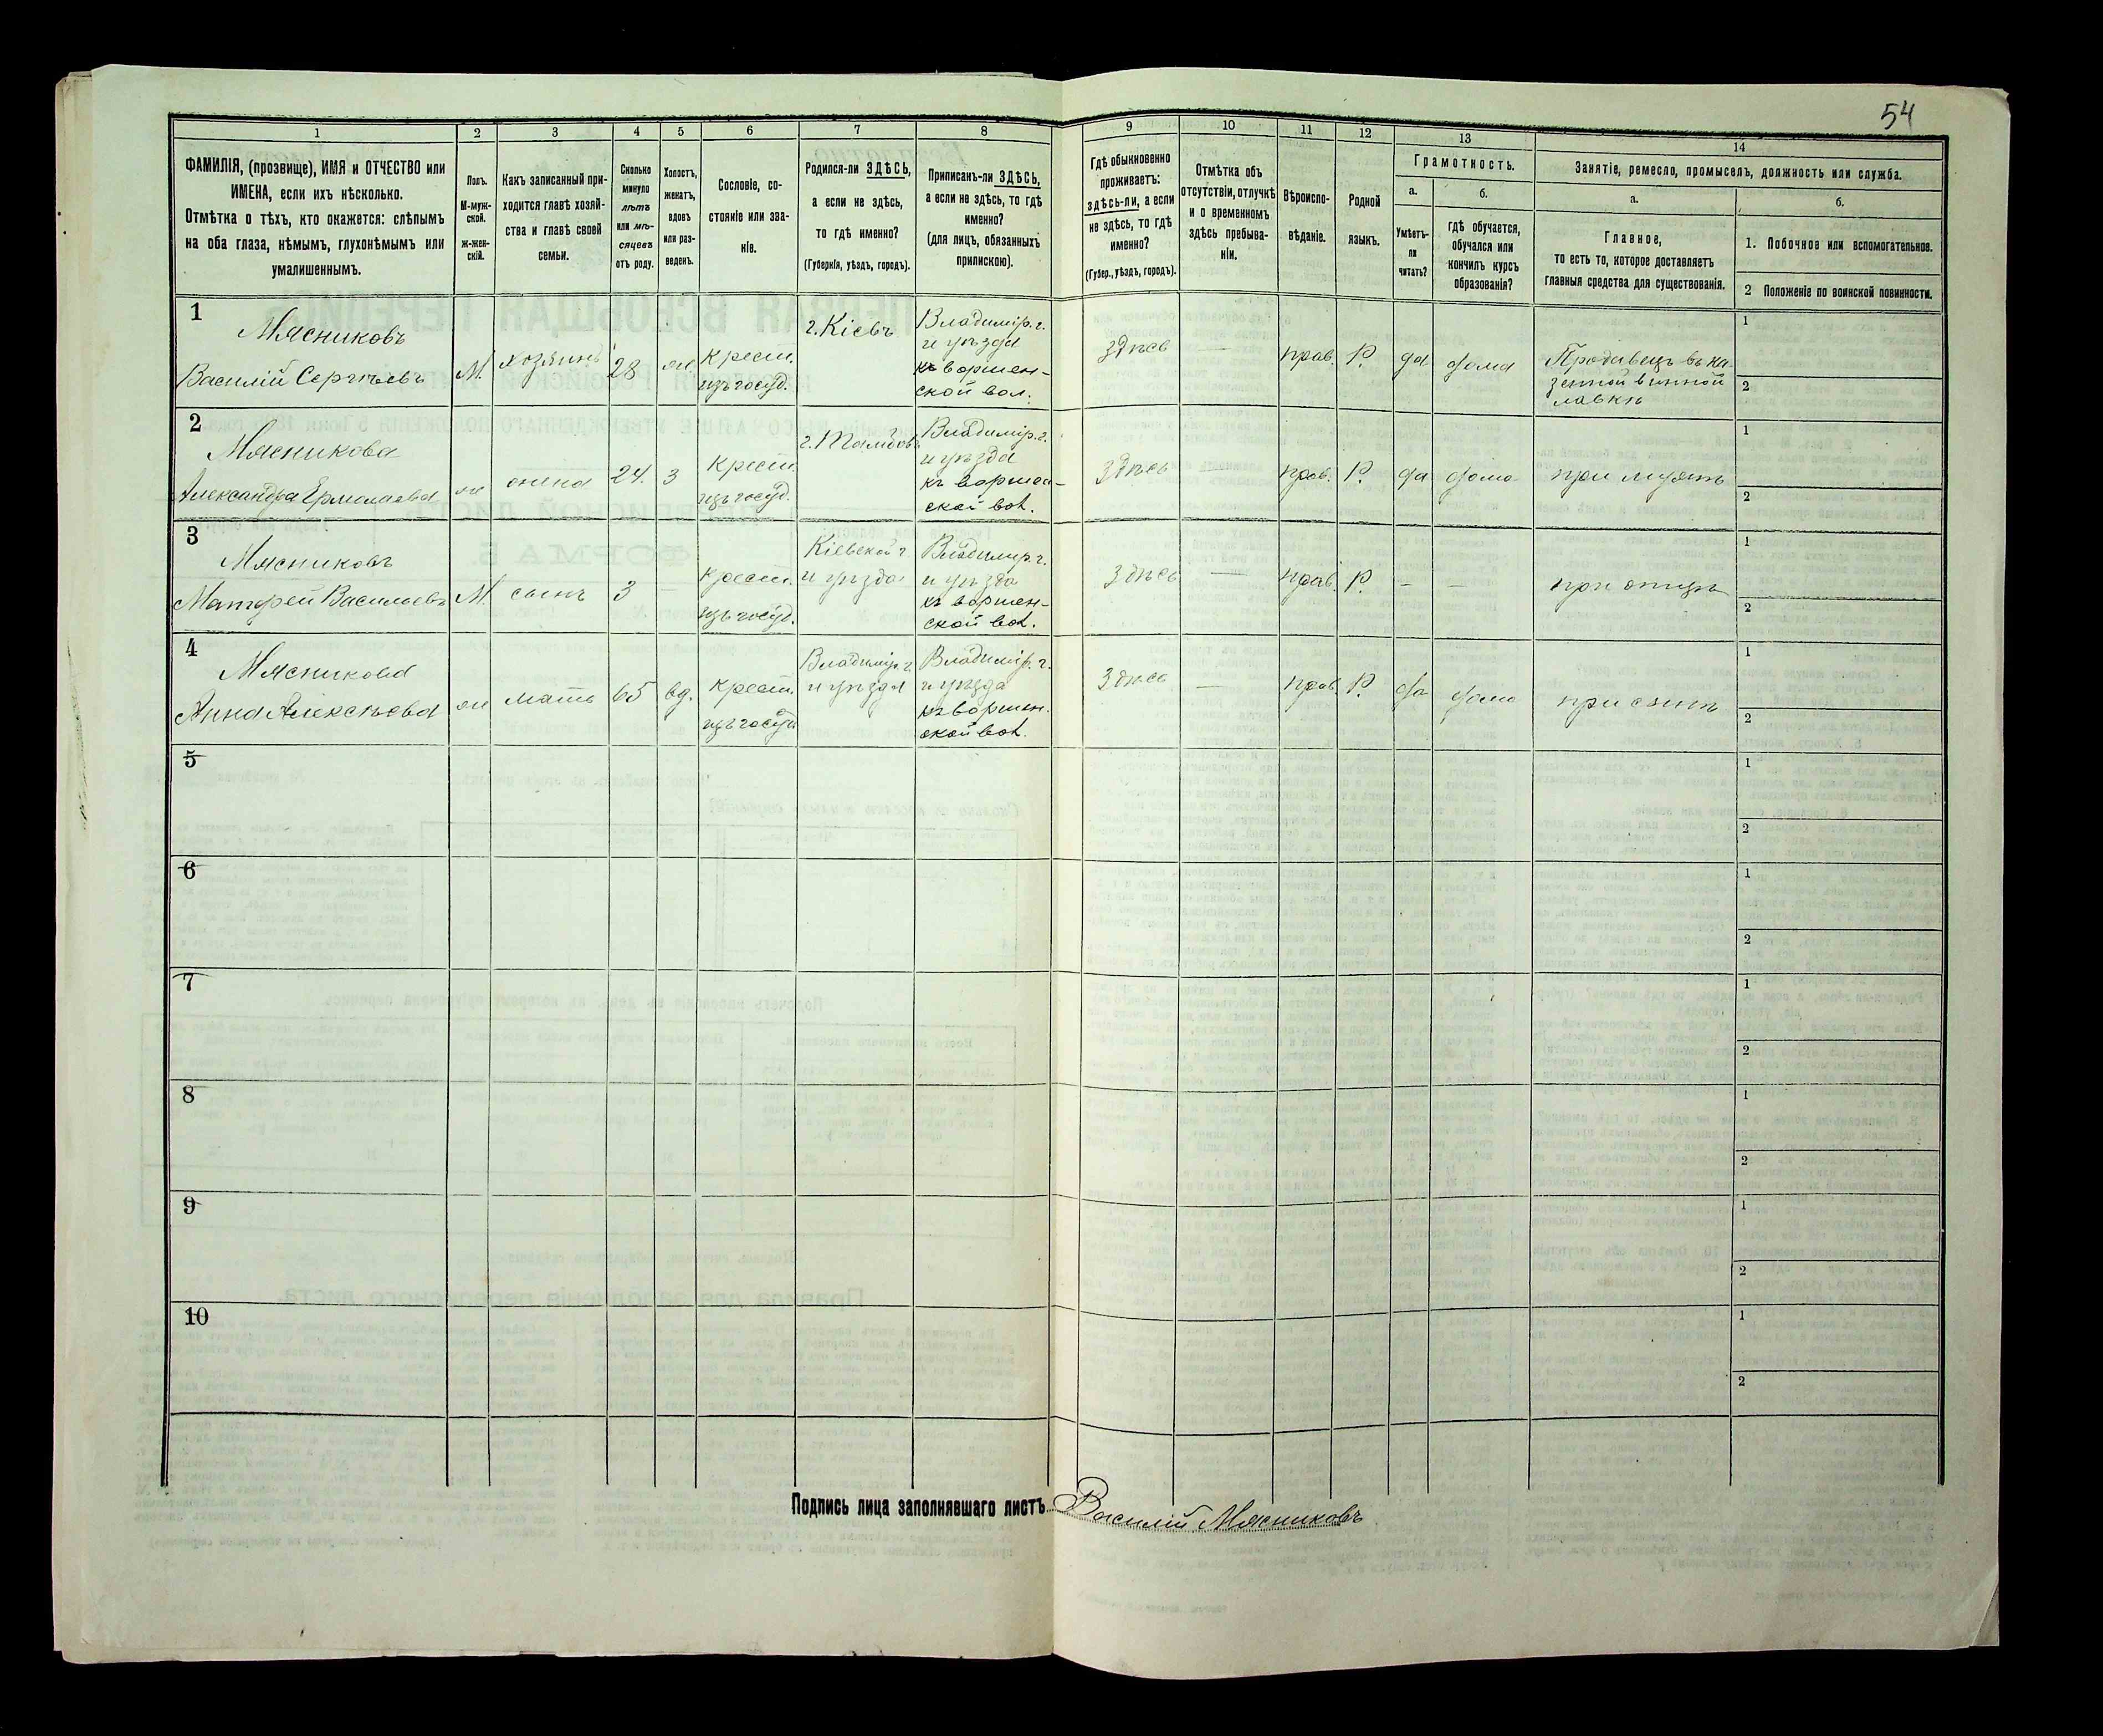 54
1 2 3 4 5 6 7 8 9 10 11 12 13 14
ФАМИЛІЯ, (прозвище), ИМЯ и ОТЧЕСТВО или
ИМЕНА, если ихъ нѣсколько.
Отмѣтка о тѣхъ, кто окажется: слѣпымъ
на оба глаза, нѣмымъ, глухонѣмымъ или
умалишеннымъ.
Полъ.
М-муж-
ской.
ж-жен-
скій.
Какъ записанный при-
ходится главѣ хозяй-
ства и главѣ своей
семьи.
Сколько
минуло
лѣтъ
или мѣ-
сяцевъ
отъ роду.
Холостъ,
женатъ,
вдовъ
или раз-
веденъ.
Сословіе, со-
стояніе или зва-
ніе.
Родился-ли ЗДѢСЬ,
а если не здѣсь,
то гдѣ именно?
(Губернія, уѣздъ, городъ).
Приписанъ-ли ЗДѢСЬ,
а если не здѣсь, то гдѣ
именно?
(для лицъ, обязанныхъ
припискою).
Гдѣ обыкновенно
проживаетъ:
здѣсь-ли, а если
не здѣсь, то гдѣ
именно?
(Губер., уѣздъ, городъ).
Отмѣтка объ
отсутствіи, отлучкѣ
и о временномъ
здѣсь пребыва-
ніи.
Вѣроиспо-
вѣданіе.
Родной
языкъ.
Грамотность.
а.
Умѣетъ-
ли
читать?
б.
Гдѣ обучается,
обучался или
кончилъ курсъ
образованія?
Занятіе, ремесло, промыселъ, должность или служба.
а.
Главное,
то есть то, которое доставляетъ
главныя средства для существованія.
б.
1. Побочное или вспомогательное.
2 Положеніе по воинской повинности.
1
Мясниковъ
Василій Сергѣевъ
М.
хозяинъ
28
же
крест.
изъ госуд.
г. Кіевъ
Владимір. г.
и уѣзда
къ воршен-
ской вол.
здѣсь
—
прав.
Р.
да
дома
Продавецъ въ ка-
зенной винной
лавкѣ
1
2
2
Мясникова
Александра Ермолаева
ж
жена
24.
З
крест.
изъ госуд.
г. Тамбовъ
Владимір. г.
и уѣзда
къ воршен-
ской вол.
здѣсь
—
прав.
Р.
да
дома
при мужѣ
1
2
3
Мясниковъ
Матфей Васильевъ
М.
сынъ
3
—
крест.
изъ госуд.
Кіевской г
и уѣзда
Владимир. г.
и уѣзда
къ воршен-
ской вол.
здѣсь
—
прав.
Р.
—
—
при отцѣ
1
2
4
Мясникова
Анна Алексѣева
ж
мать
65
вд.
крест.
изъ госуд
Владимір. г.
и уѣзда
Владимір. г.
и уѣзда
къ воршен.
ской вол.
здѣсь
—
прав.
Р.
да
дома
при сынѣ
1
2
5
1
2
6
1
2
7
1
2
8
1
2
9
1
2
10
1
2
Подпись лица заполнявшаго листъ Василій Мясниковъ